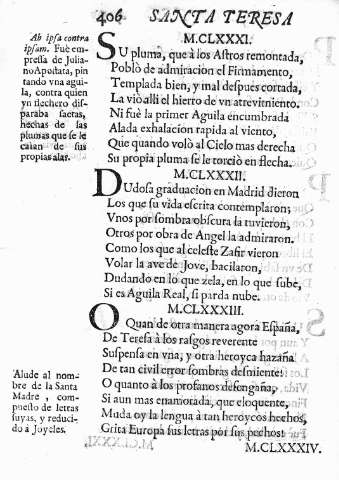 406 SANTA TERESA
Ab ipsa contra
ipsam. Fuè em-
pressa de Julia-
no Apostata, pin
tando vna agui-
la, contra quien
vn flechero dis-
paraba saetas,
hechas de las
plumas que se le
caìan de sus
propias alas.
M.CLXXXI.
SU pluma, que à los Astros remontada,
Poblò de admiracion el Firmamento,
Templada bien, y mal despues cortada,
La viò allì el hierro de vn atrevimiento.
Ni fuè la primer Aguila encumbrada
Alada exhalacion rapida al viento,
Que quando volò al Cielo mas derecha
Su propia pluma se le torciò en flecha.
M.CLXXXII.
DUdosa graduacion en Madrid dieron
Los que su vida escrita contemplaron;
Vnos por sombra obscura la tuvieron,
Otros por obra de Angel la admiraron.
Como los que al celeste Zafir vieron
Volar la ave de Jove, bacilaron,
Dudando en lo que zela, en lo que sube,
Si es Aguila Real, si parda nube.
M.CLXXXIII.
O Quan de otra manera agora España,
De Teresa à los rasgos reverente
Suspensa en vna, y otra heroyca hazaña
De tan civil error sombras desmiente!
O quanto à los profanos desengaña,
Si aun mas enamorada, que eloquente,
Muda oy la lengua à tan heroycos hechos,
Grita Europa sus letras por sus pechos!
Alude al nom-
bre de la Santa
Madre, com-
puesto de letras
suyas, y reduci-
do à Joyeles.
M.CLXXXIV.